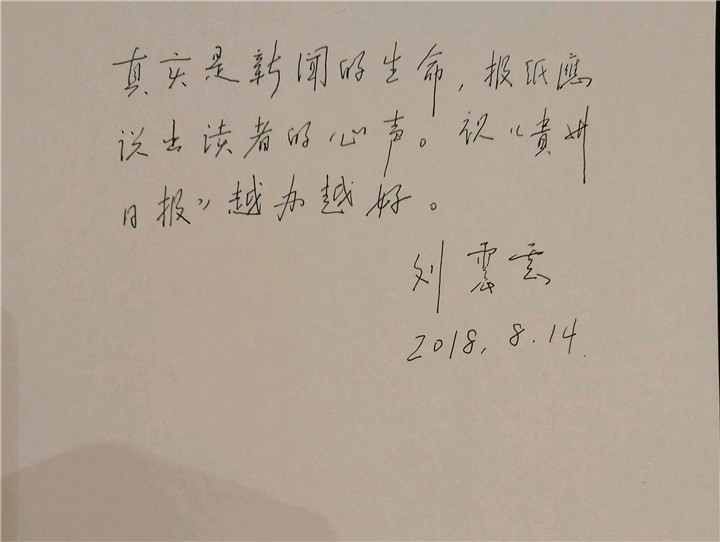 真实是新闻的生命，报纸應
说出读者的心声。祝《貴州
日报》越办越好。
刘震雲
2018.8.14